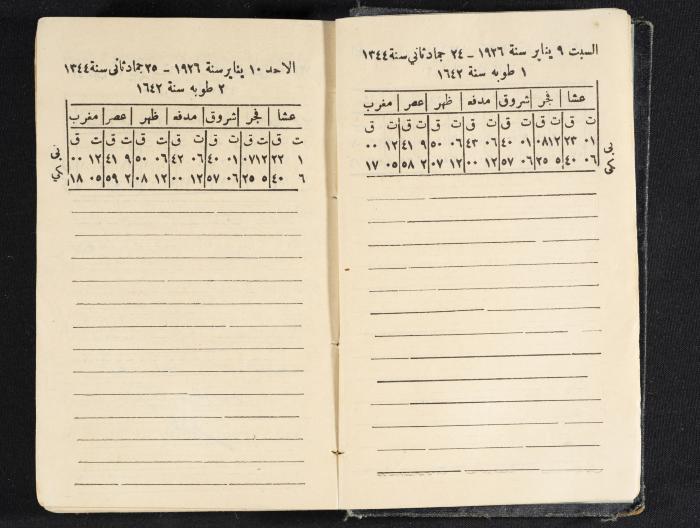 السبت ٩ يناير سنة ١٩٢٦ – ٢٤ جماد ثاني سنة ١٣٤٤
١ طوبه سنة ١٦٤٢
عشا فجر شروق مدفه ظهر عصر مغرب
ت ق ت ق ت ق ت ق ت ق ت ق ت ق
٠١ ٢٣ ١٢ ٠٨ ٠١ ٤٠ ٠٦ ٤٣ ٠٦ ٥٠ ٩ ٤١ ١٢ ٠٠
٠٦ ٤٠ ٥ ٢٥ ٠٦ ٥٧ ١٢ ٠٠ ١٢ ٠٧ ٢ ٥٨ ٠٥ ١٧
الاحد ١٠ يناير سنة ١٩٢٦ – ٢٥ جماد ثاني سنة ١٣٤٤
٢ طوبه سنة ١٦٤٢
عشا فجر شروق مدفه ظهر عصر مغرب
ت ق ت ق ت ق ت ق ت ق ت ق ت ق
١ ٢٢ ١٢ ٠٧ ٠١ ٤٠ ٠٦ ٤٢ ٠٦ ٥٠ ٩ ٤١ ١٢ ٠٠
٦ ٤٠ ٥ ٢٥ ٠٦ ٥٧ ١٢ ٠٠ ١٢ ٠٨ ٢ ٥٩ ٠٥ ١٨